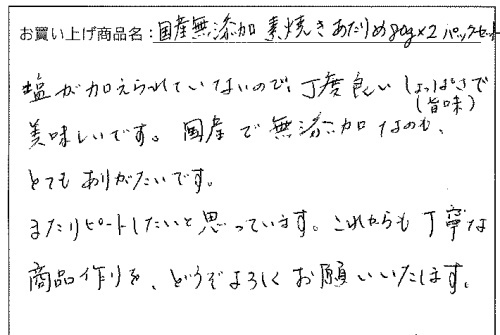 お買い上げ商品名:国産無添加 素焼きあたりめ80g×2パックセット
塩が加えられていないので、丁度良いしょっぱさで
(旨味)
美味しいです。国産で無添加なのも、
とてもありがたいです。
またリピートしたいと思っています。これからも丁寧な
商品作りを、どうぞよろしくお願いいたします。